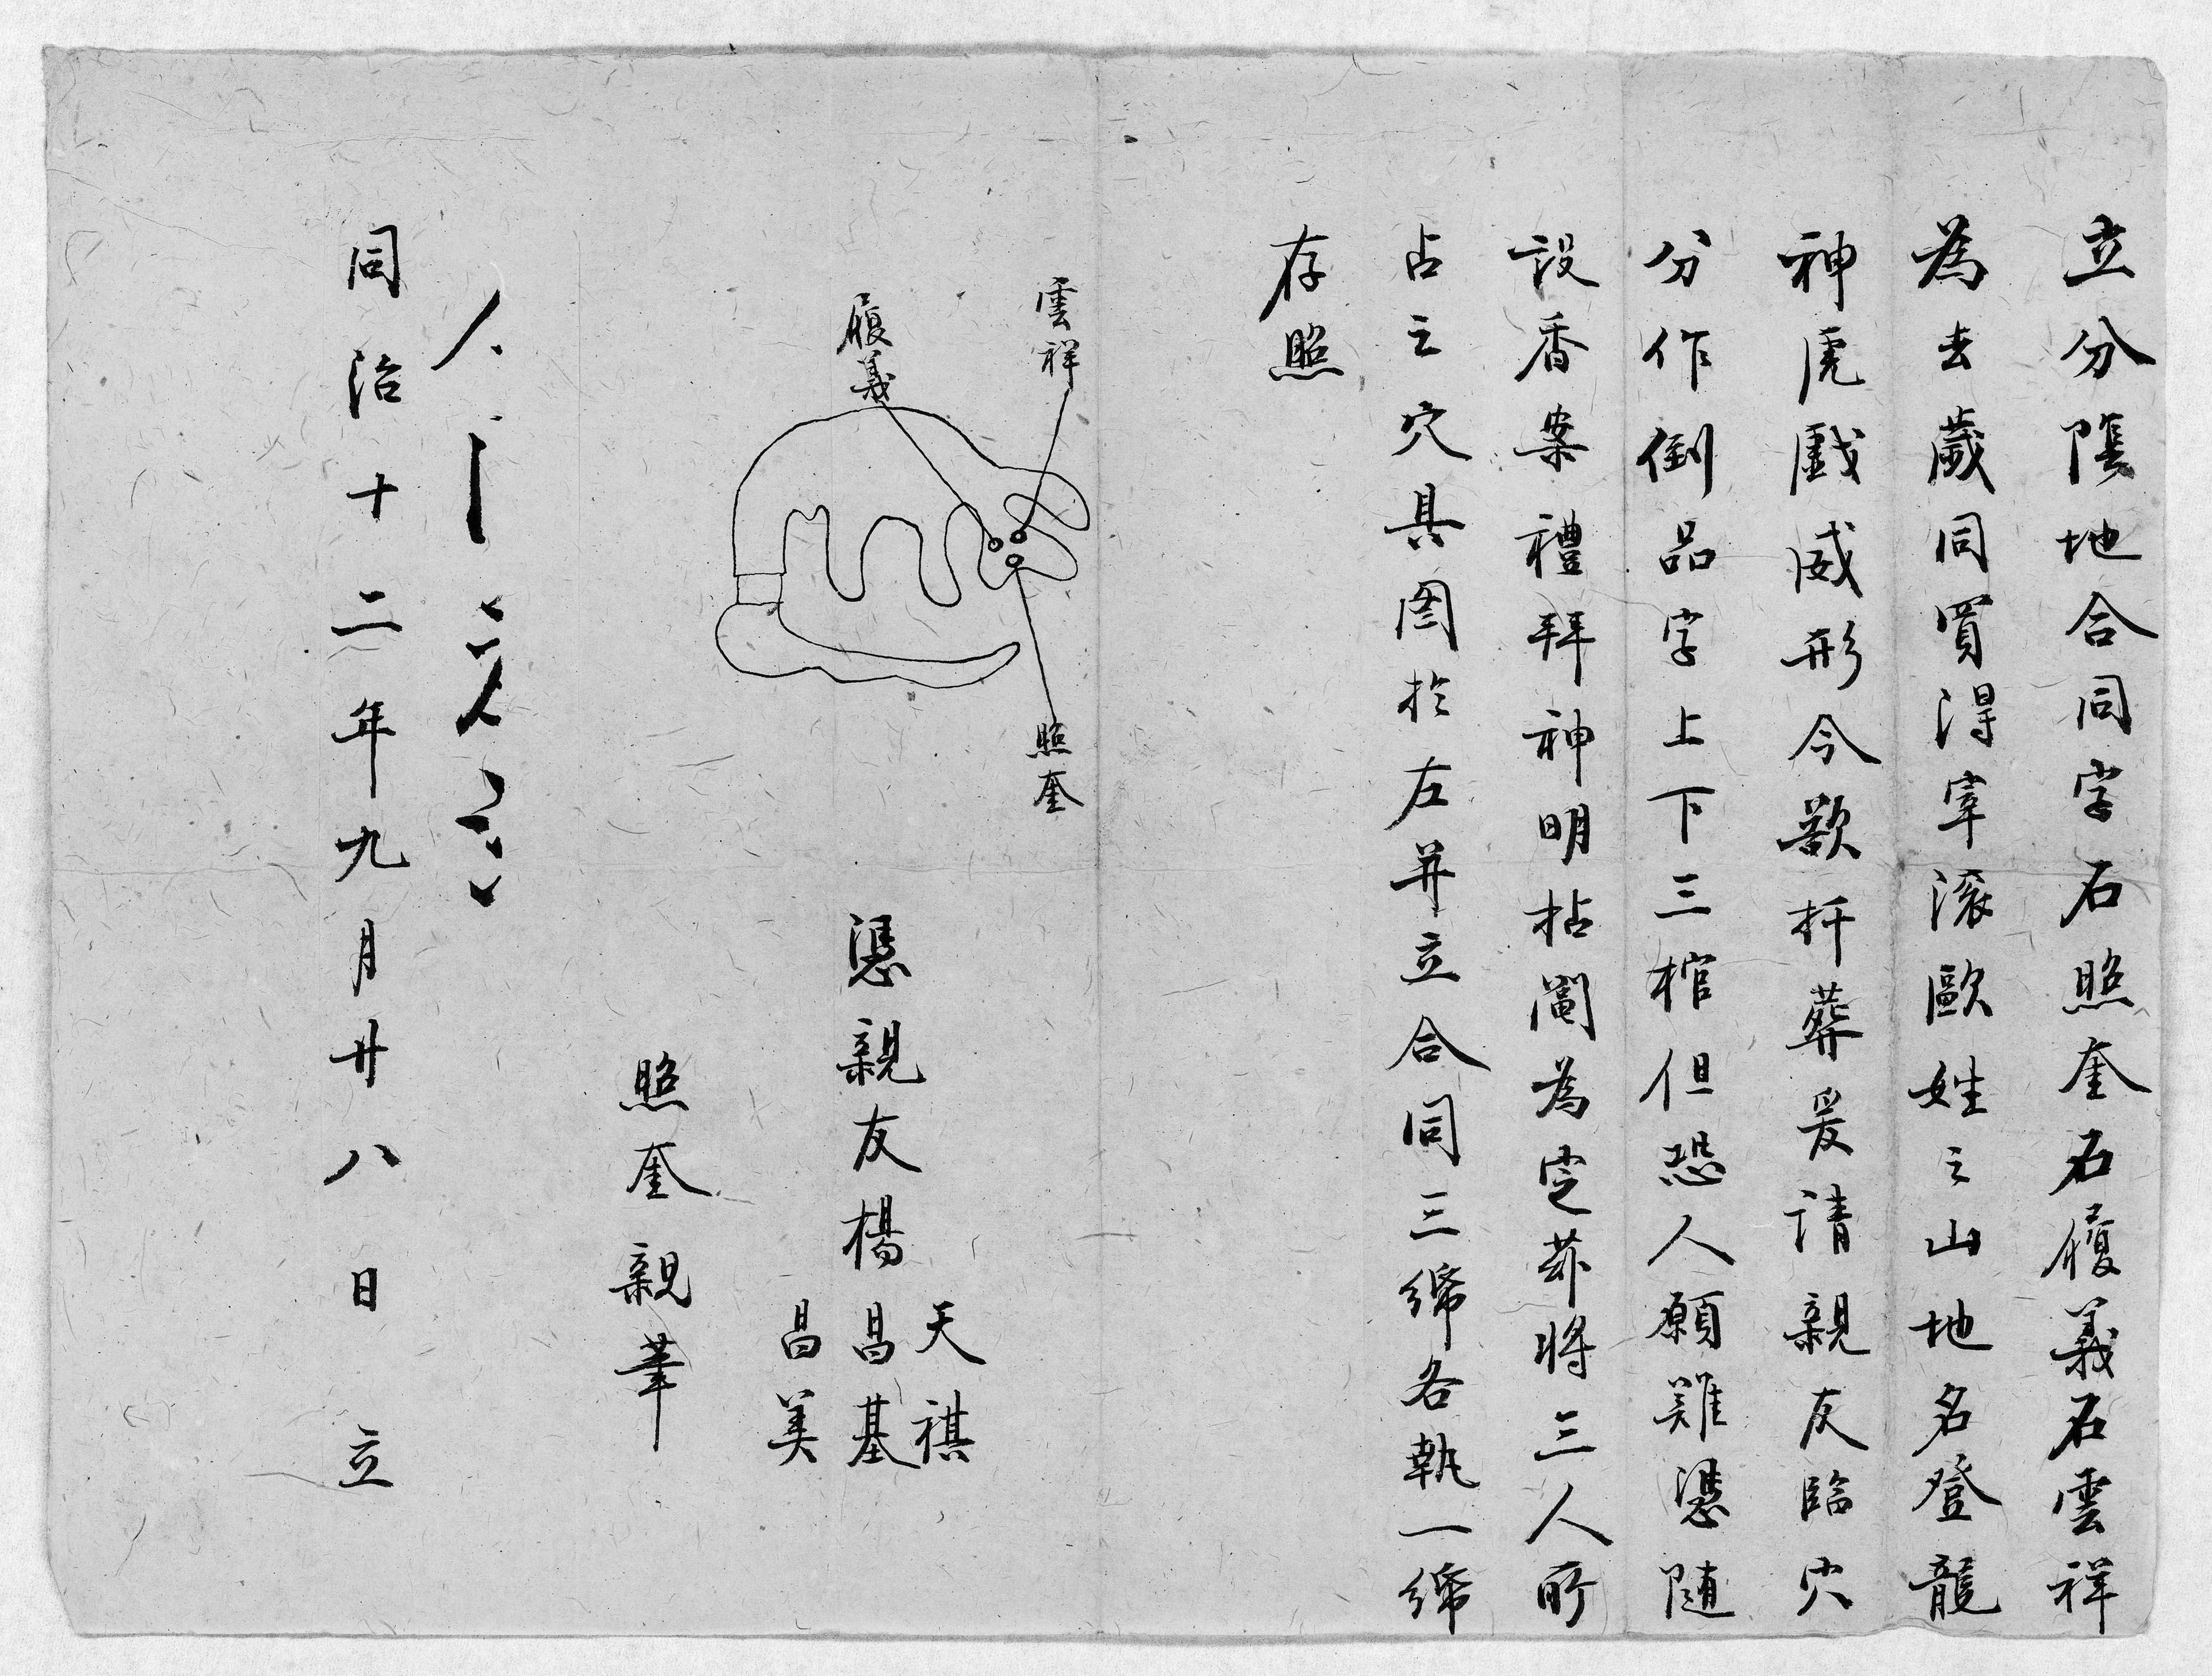 立分陰地合同字石照奎石履義石雲祥
為去歲同買得宰滚歐姓之山地名登龍
神虎戲威形今欲扦葬爰請親友臨穴
分作倒品字上下三棺但恐人願難憑隨
設香案禮拜神明拈阄為定茲將三人所
占之穴具图於左并立合同三紙各執一紙
存照
雲祥
履義
照奎
憑親友楊
天祺
昌基
昌美
照奎親筆
同治十二年九月廿八日立